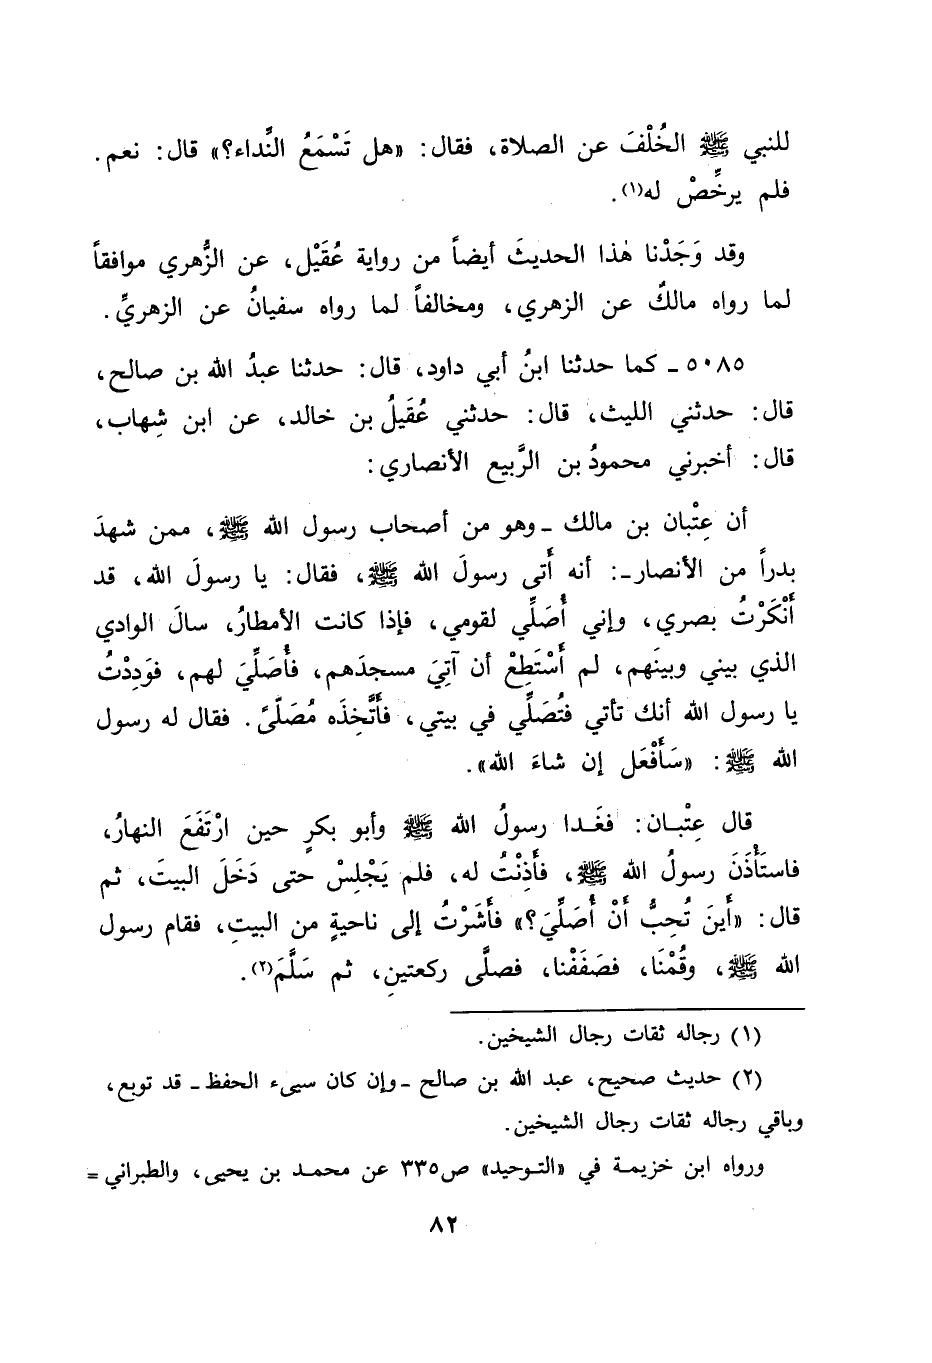 للنبي ﷺ الخُلْفَ عن الصلاة، فقال: «هل تَسْمَعُ النِّداء؟» قال: نعم.
فلم يرخِّصْ له(١).
وقد وَجَدْنا هٰذا الحديثَ أيضاً من رواية عُقَيْل، عن الزُّهري موافقاً
لما رواه مالكٌ عن الزهري، ومخالفاً لما رواه سفيانُ عن الزهريِّ.
٥٠٨٥ـ كما حدثنا ابنُ أبي داود، قال: حدثنا عبدُ الله بن صالح،
قال: حدثني الليث، قال: حدثني عُقَيلُ بن خالد، عن ابن شِهاب،
قال: أخبرني محمودُ بن الرَّبيع الأنصاري:
أن عِتْبان بن مالك ـ وهو من أصحاب رسول الله ﷺ، ممن شهدَ
بدراً من الأنصار ـ: أنه أَتى رسولَ الله ﷺ، فقال: يا رسولَ الله، قد
أَنْكَرْتُ بصري، وإني أُصَلِّي لقومي، فإذا كانت الأمطارُ، سالَ الوادي
الذي بيني وبينَهم، لم أَسْتَطِعْ أن آتِيَ مسجدَهم، فأُصَلِّيَ لهم، فوَدِدْتُ
يا رسول الله أنك تأتي فتُصَلِّي في بيتي، فأَتَّخِذَه مُصَلّىً. فقال له رسول
الله ﷺ: «سَأَفْعَل إن شاءَ الله».
قال عِتْبـان: فغَـدا رسولُ الله ﷺ وأبو بكرٍ حين ارْتَفَعَ النهارُ،
فاستَأْذَنَ رسولُ الله ﷺ، فأَذِنْتُ له، فلم يَجْلِسْ حتى دَخَلَ البيتَ، ثم
قال: «أَينَ تُحِبُّ أَنْ أُصَلِّيَ؟» فأَشَرْتُ إلى ناحيةٍ من البيتِ، فقام رسول
الله ﷺ، وقُمْنَا، فصَفَفْنا، فصلَّى ركعتينِ، ثم سَلَّمَ(٢).
(١) رجاله ثقات رجال الشيخين.
(٢) حديث صحيح، عبد الله بن صالح ـ وإن كان سيىء الحفظ ـ قد توبع،
وباقي رجاله ثقات رجال الشيخين.
ورواه ابن خزيمـة في «التـوحيد» ص٣٣٥ عن محمـد بن يحيى، والطبراني =
٨٢